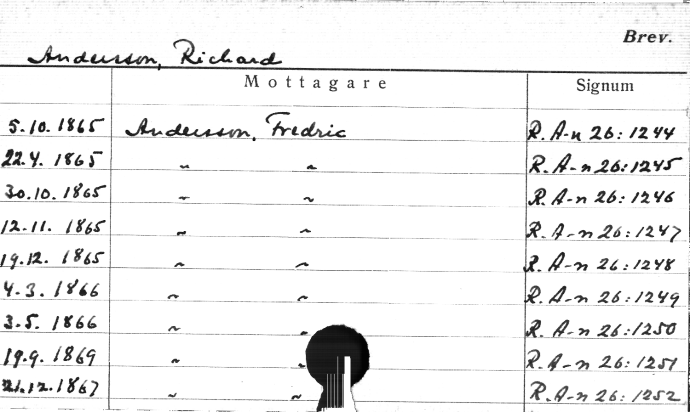 Brev.
Andersson, Richard
Mottagare Signum
5.10. 1865 Andersson, Fredric R. A-n 26:1244
22.4. 1865 " " R. A-n 26:1245
30.10. 1865 " " R. A-n 26:1246
12.11. 1865 " " R. A-n 26:1247
19.12. 1865 " " R. A-n 26:1248
4.3. 1866 " " R. A-n 26:1249
3.5. 1866 " " R. A-n 26:1250
19.9. 1869 " " R. A-n 26:1251
21.12. 1867 " " R. A-n 26:1252